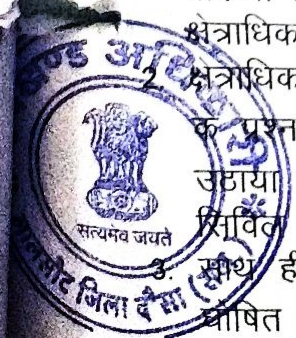 क्षेत्राधिक
2. क्षेत्राधिक
के प्रश्न
उठाया
सिविल
3. साथ ही
घोषित
सत्यमेव जयते
जिला दौसा (राज.) *